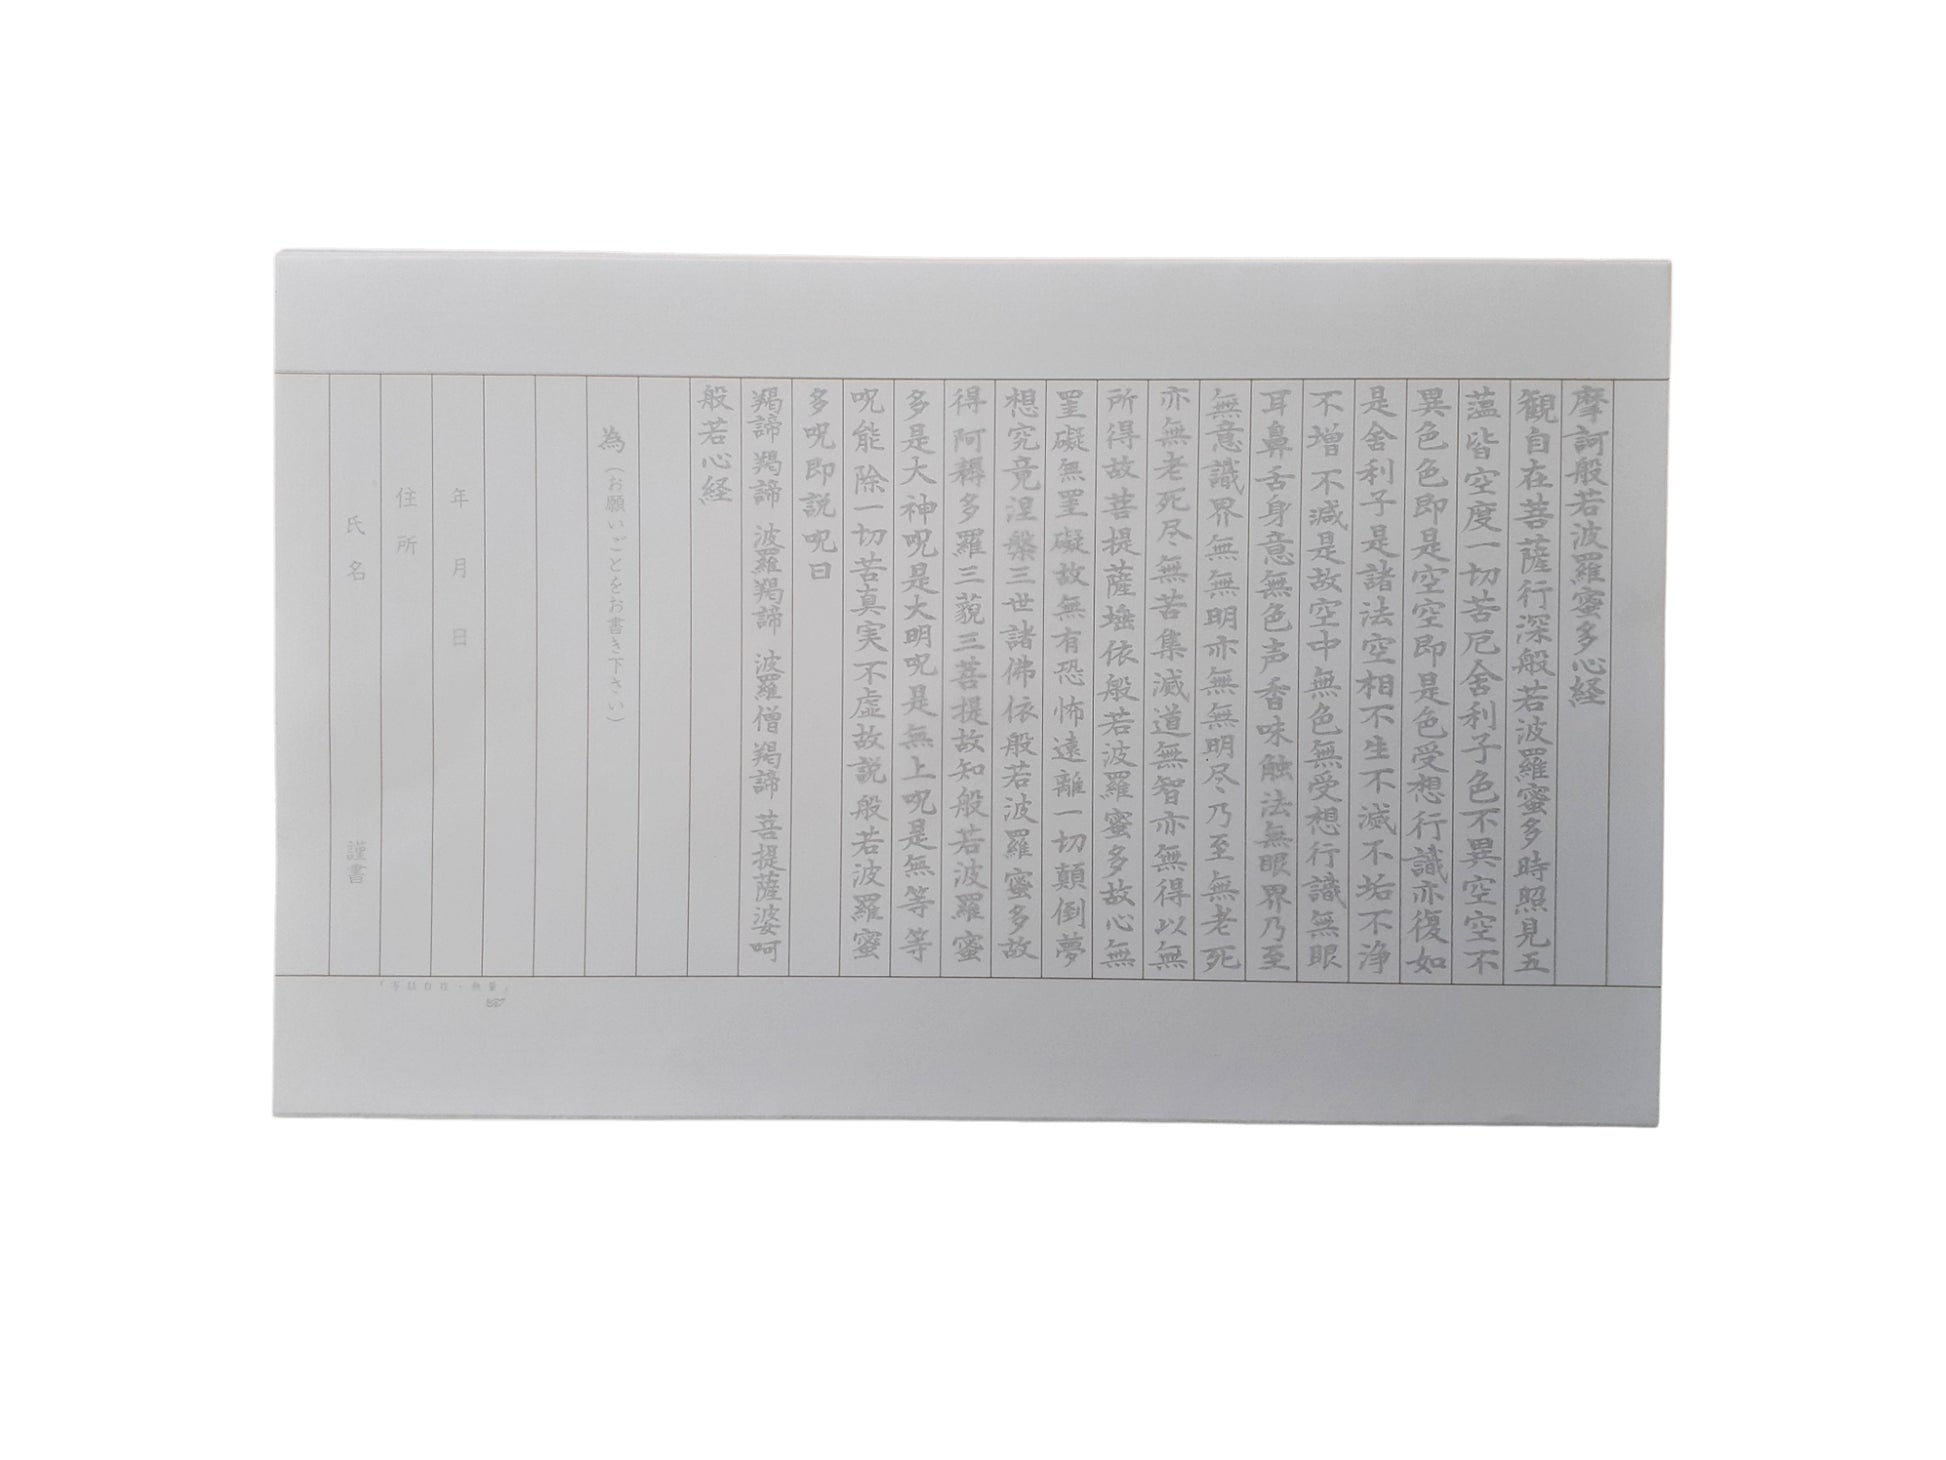 摩訶般若波羅蜜多心経
観自在菩薩行深般若波羅蜜多時照見五
蘊皆空度一切苦厄舎利子色不異空空不
異色色即是空空即是色受想行識亦復如
是舎利子是諸法空相不生不滅不垢不浄
不増不減是故空中無色無受想行識無眼
耳鼻舌身意無色声香味触法無眼界乃至
無意識界無無明亦無無明尽乃至無老死
亦無老死尽無苦集滅道無智亦無得以無
所得故菩提薩埵依般若波羅蜜多故心無
罣礙無罣礙故無有恐怖遠離一切顛倒夢
想究竟涅槃三世諸佛依般若波羅蜜多故
得阿耨多羅三藐三菩提故知般若波羅蜜
多是大神呪是大明呪是無上呪是無等等
呪能除一切苦真実不虚故説般若波羅蜜
多呪即説呪曰
羯諦 羯諦 波羅羯諦 波羅僧羯諦 菩提薩婆呵
般若心経
為（お願いごとをお書き下さい）
年 月 日
住所
氏名 謹書